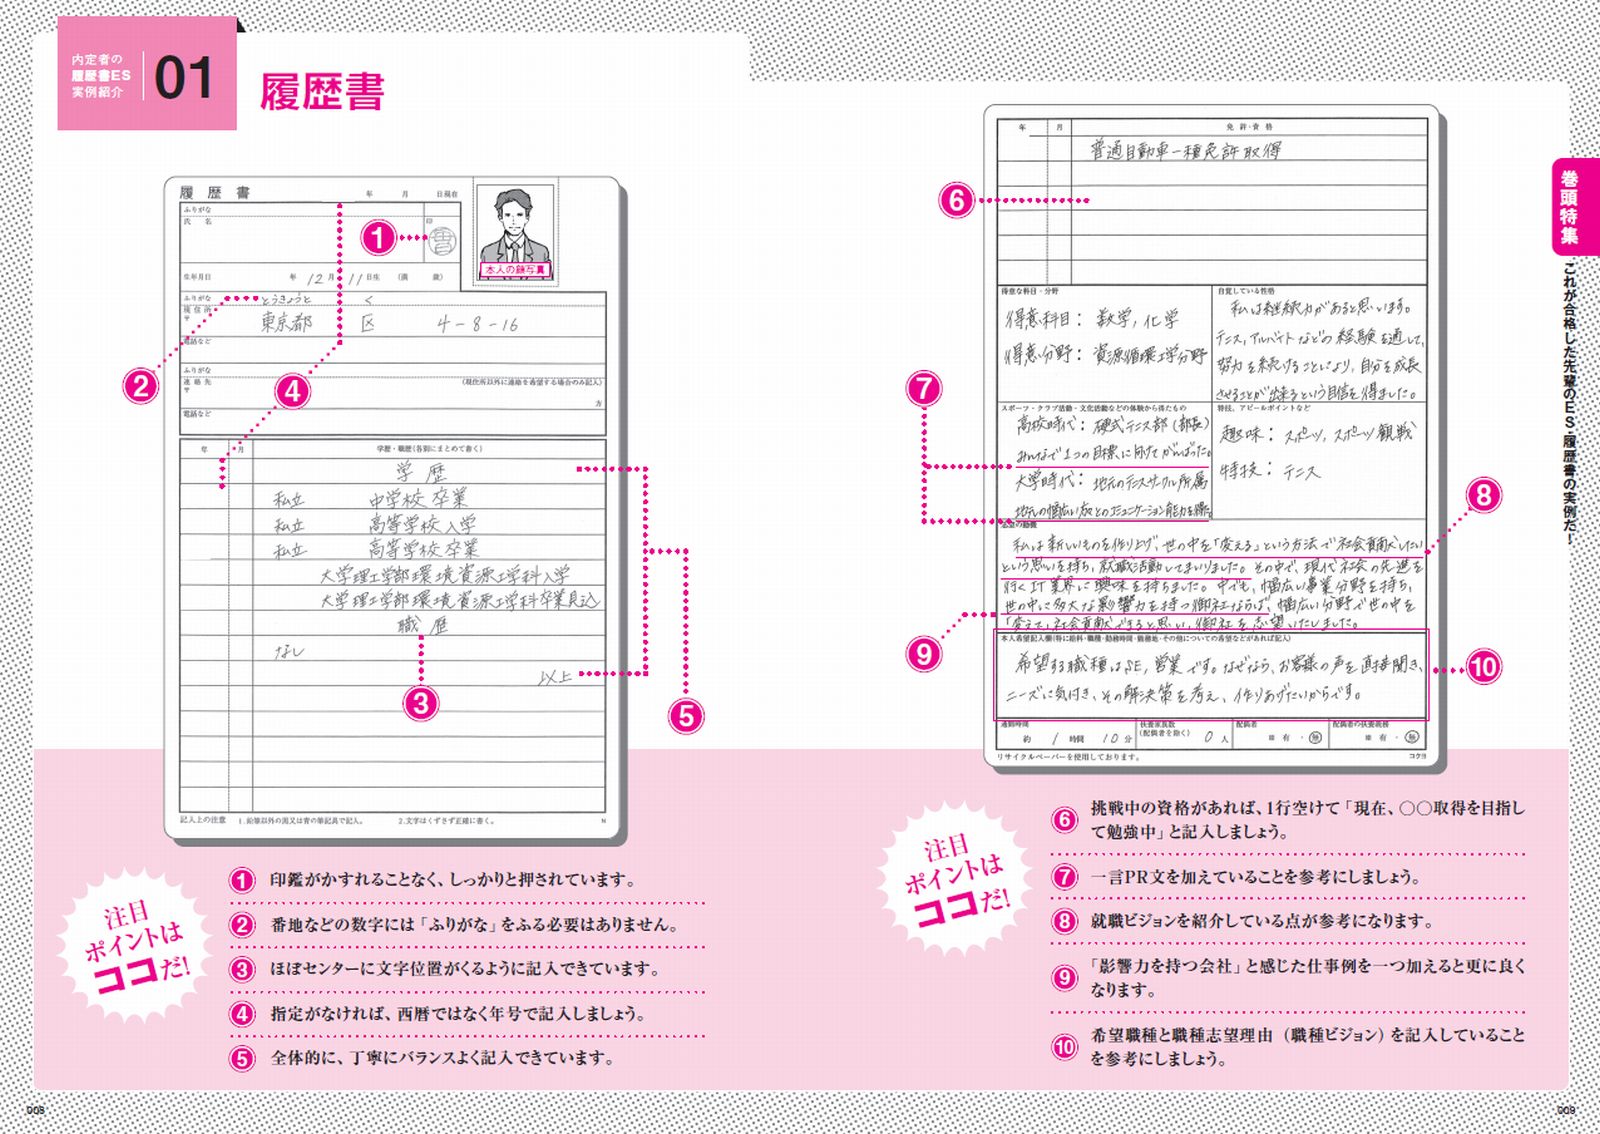 内定者の
履歴書ES
実例紹介
01
履歴書
履歴書
年 月 日現在
ふりがな
氏 名
印
本人の顔写真
生年月日
年 12月 11日生 (満 歳)
ふりがな とうきょうと く
現住所
〒
東京都 区 4-8-16
電話など
ふりがな
連絡先
(現住所以外に連絡を希望する場合のみ記入)
〒
方
電話など
年 月 学歴・職歴(各別にまとめて書く)
学歴
私立 中学校 卒業
私立 高等学校入学
私立 高等学校卒業
大学理工学部環境資源工学科入学
大学理工学部環境資源工学科卒業見込
職歴
なし
以上
記入上の注意 1.鉛筆以外の黒又は青の筆記具で記入。 2.文字はくずさず正確に書く。
N
1
2
3
4
5
注目
ポイントは
ココだ!
1 印鑑がかすれることなく、しっかりと押されています。
2 番地などの数字には「ふりがな」をふる必要はありません。
3 ほぼセンターに文字位置がくるように記入できています。
4 指定がなければ、西暦ではなく年号で記入しましょう。
5 全体的に、丁寧にバランスよく記入できています。
008
年 月 免許・資格
普通自動車一種免許取得
得意な科目・分野
得意科目：数学，化学
得意分野：資源循環工学分野
自覚している性格
私は継続力があると思います。
テニス，アルバイトなどの経験を通して，
努力を続けることにより，自分を成長
させることが出来るという自信を得ました。
スポーツ・クラブ活動・文化活動などの体験から得たもの
高校時代：硬式テニス部(部長)
みんなで1つの目標に向けてがんばった。
大学時代：地元のテニスサークル所属
地元の幅広い知人とのコミュニケーション能力を得た。
特技、アピールポイントなど
趣味：スポーツ，スポーツ観戦
特技：テニス
志望の動機
私は新しいものを作り上げ，世の中を「変える」という方法で社会貢献したい
という思いを持ち，就職活動してまいりました。その中で，現代社会の先進を
行くIT業界に興味を持ちました。中でも，幅広い事業分野を持ち，
世の中に多大な影響力を持つ御社ならば，幅広い分野で世の中を
「変えて」社会貢献できると思い，御社を志望いたしました。
本人希望記入欄(特に給料・職種・勤務時間・勤務地・その他についての希望などがあれば記入)
希望する職種はSE，営業です。なぜなら，お客様の声を直接聞き，
ニーズに気付き，その解決策を考え，作りあげたいからです。
通勤時間
約 1 時間 10 分
扶養家族数
(配偶者を除く) 0 人
配偶者
※ 有 ・ 無
配偶者の扶養義務
※ 有 ・ 無
リサイクルペーパーを使用しております。
コクヨ
6
7
8
9
10
注目
ポイントは
ココだ!
6 挑戦中の資格があれば、1行空けて「現在、○○取得を目指し
て勉強中」と記入しましょう。
7 一言PR文を加えていることを参考にしましょう。
8 就職ビジョンを紹介している点が参考になります。
9 「影響力を持つ会社」と感じた仕事例を一つ加えると更に良く
なります。
10 希望職種と職種志望理由（職種ビジョン）を記入していること
を参考にしましょう。
巻頭特集
これが合格した先輩のES・履歴書の実例だ！
009